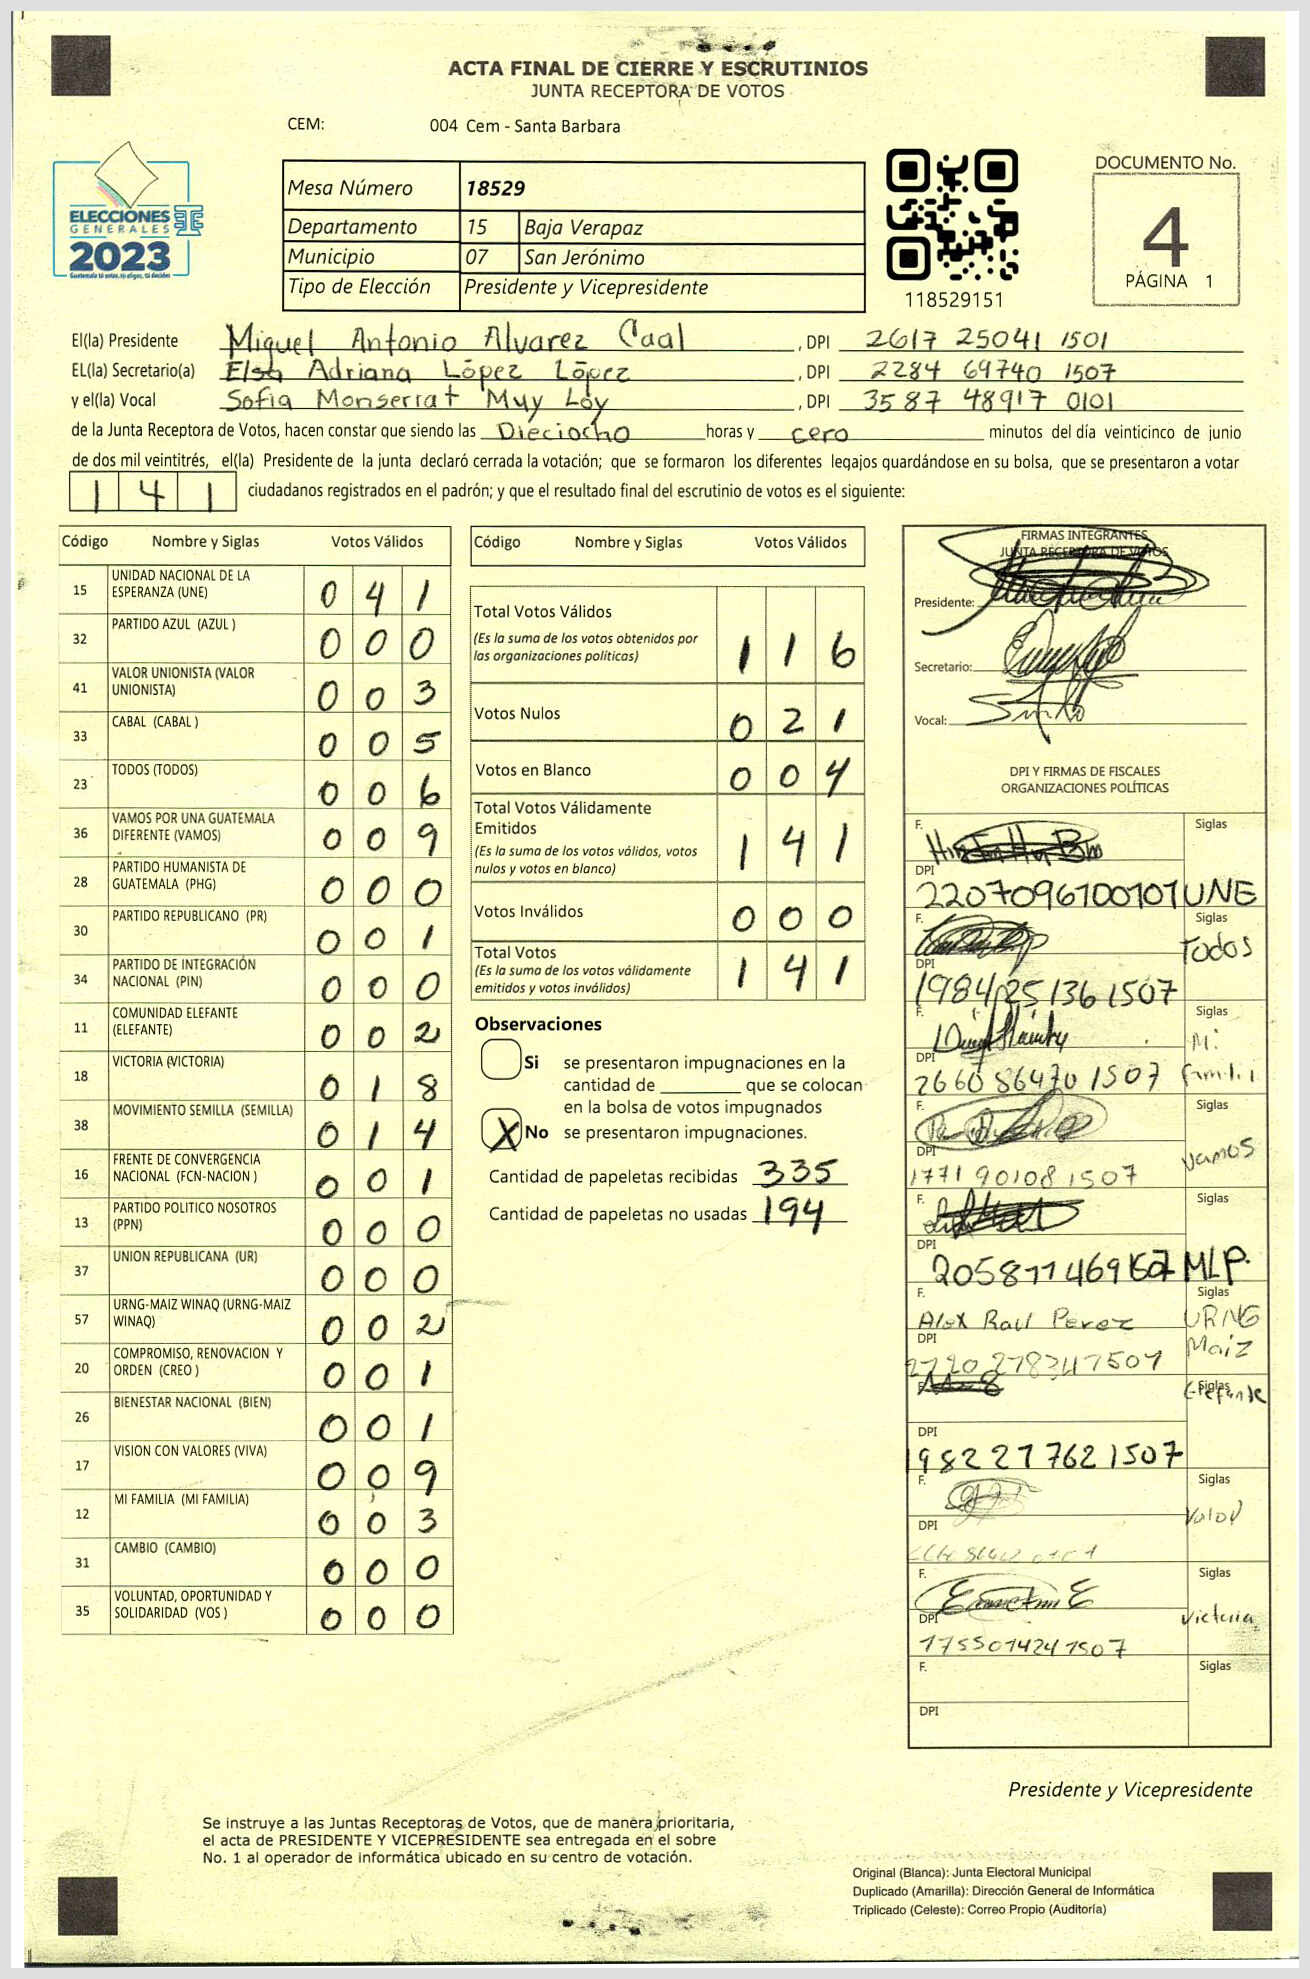 ACTA FINAL DE CIERRE Y ESCRUTINIOS
JUNTA RECEPTORA DE VOTOS
CEM: 004 Cem - Santa Barbara
ELECCIONES
GENERALES
2023
Guatemala tú eres, tú eliges, tú decides
Mesa Número 18529
Departamento 15 Baja Verapaz
Municipio 07 San Jerónimo
Tipo de Elección Presidente y Vicepresidente
118529151
DOCUMENTO No.
4
PÁGINA 1
El(la) Presidente Miguel Antonio Alvarez Caal , DPI 2617 25041 1501
EL(la) Secretario(a) Elsa Adriana López López , DPI 2284 69740 1507
y el(la) Vocal Sofia Monserrat Muy Loy , DPI 3587 48917 0101
de la Junta Receptora de Votos, hacen constar que siendo las Dieciocho horas y cero minutos del día veinticinco de junio
de dos mil veintitrés, el(la) Presidente de la junta declaró cerrada la votación; que se formaron los diferentes legajos guardándose en su bolsa, que se presentaron a votar
141 ciudadanos registrados en el padrón; y que el resultado final del escrutinio de votos es el siguiente:
Código Nombre y Siglas Votos Válidos
15 UNIDAD NACIONAL DE LA ESPERANZA (UNE) 0 4 1
32 PARTIDO AZUL (AZUL ) 0 0 0
41 VALOR UNIONISTA (VALOR UNIONISTA) 0 0 3
33 CABAL (CABAL ) 0 0 5
23 TODOS (TODOS) 0 0 6
36 VAMOS POR UNA GUATEMALA DIFERENTE (VAMOS) 0 0 9
28 PARTIDO HUMANISTA DE GUATEMALA (PHG) 0 0 0
30 PARTIDO REPUBLICANO (PR) 0 0 1
34 PARTIDO DE INTEGRACIÓN NACIONAL (PIN) 0 0 0
11 COMUNIDAD ELEFANTE (ELEFANTE) 0 0 2
18 VICTORIA (VICTORIA) 0 1 8
38 MOVIMIENTO SEMILLA (SEMILLA) 0 1 4
16 FRENTE DE CONVERGENCIA NACIONAL (FCN-NACION ) 0 0 1
13 PARTIDO POLITICO NOSOTROS (PPN) 0 0 0
37 UNION REPUBLICANA (UR) 0 0 0
57 URNG-MAIZ WINAQ (URNG-MAIZ WINAQ) 0 0 2
20 COMPROMISO, RENOVACION Y ORDEN (CREO ) 0 0 1
26 BIENESTAR NACIONAL (BIEN) 0 0 1
17 VISION CON VALORES (VIVA) 0 0 9
12 MI FAMILIA (MI FAMILIA) 0 0 3
31 CAMBIO (CAMBIO) 0 0 0
35 VOLUNTAD, OPORTUNIDAD Y SOLIDARIDAD (VOS ) 0 0 0
Código Nombre y Siglas Votos Válidos
Total Votos Válidos 1 1 6
(Es la suma de los votos obtenidos por
las organizaciones políticas)
Votos Nulos 0 2 1
Votos en Blanco 0 0 4
Total Votos Válidamente
Emitidos 1 4 1
(Es la suma de los votos válidos, votos
nulos y votos en blanco)
Votos Inválidos 0 0 0
Total Votos 1 4 1
(Es la suma de los votos válidamente
emitidos y votos inválidos)
Observaciones
Si se presentaron impugnaciones en la
cantidad de ________ que se colocan
en la bolsa de votos impugnados
X No se presentaron impugnaciones.
Cantidad de papeletas recibidas 335
Cantidad de papeletas no usadas 194
FIRMAS INTEGRANTES
JUNTA RECEPTORA DE VOTOS
Presidente:
Secretario:
Vocal:
DPI Y FIRMAS DE FISCALES
ORGANIZACIONES POLÍTICAS
F. Siglas
DPI
2207096100101 UNE
F. Siglas
Todos
DPI
1984 25136 1507
F. Siglas
Mi
DPI
2660 86470 1507 familia
F. Siglas
DPI
Vamos
1771 90108 1507
F. Siglas
DPI
MLP.
F. Siglas
Alex Raul Perez URNG
DPI Maiz
F. Siglas
Elefante
DPI
1982 27762 1507
F. Siglas
Valor
DPI
F. Siglas
DPI Victoria
1755014241507
F. Siglas
DPI
Presidente y Vicepresidente
Se instruye a las Juntas Receptoras de Votos, que de manera prioritaria,
el acta de PRESIDENTE Y VICEPRESIDENTE sea entregada en el sobre
No. 1 al operador de informática ubicado en su centro de votación.
Original (Blanca): Junta Electoral Municipal
Duplicado (Amarilla): Dirección General de Informática
Triplicado (Celeste): Correo Propio (Auditoría)